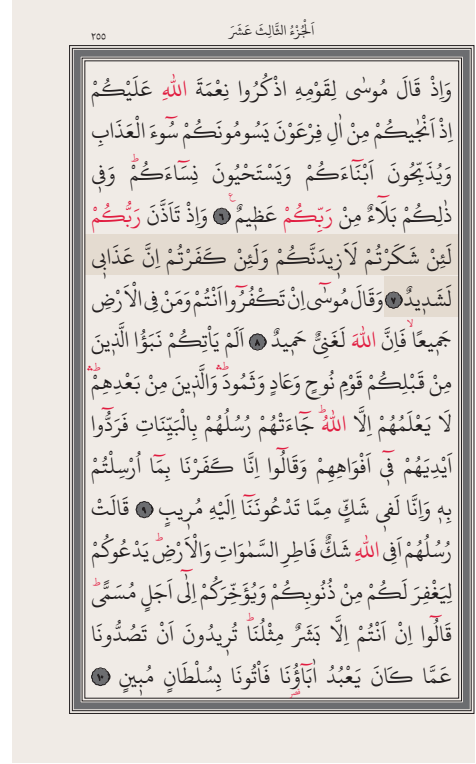 اَلْجُزْءُ الثَّالِثَ عَشَرَ
٢٥٥
وَاِذْ قَالَ مُوسٰى لِقَوْمِهِ اذْكُرُوا نِعْمَةَ اللّٰهِ عَلَيْكُمْ
اِذْ اَنْجٰيكُمْ مِنْ اٰلِ فِرْعَوْنَ يَسُومُونَكُمْ سُٓوءَ الْعَذَابِ
وَيُذَبِّحُونَ اَبْنَٓاءَكُمْ وَيَسْتَحْيُونَ نِسَٓاءَكُمْؕ وَف۪ي
ذٰلِكُمْ بَلَٓاءٌ مِنْ رَبِّكُمْ عَظ۪يمٌ ﴿٦﴾ وَاِذْ تَاَذَّنَ رَبُّكُمْ
لَئِنْ شَكَرْتُمْ لَاَز۪يدَنَّكُمْ وَلَئِنْ كَفَرْتُمْ اِنَّ عَذَاب۪ي
لَشَد۪يدٌ ﴿٧﴾ وَقَالَ مُوسٰٓى اِنْ تَكْفُرُٓوا اَنْتُمْ وَمَنْ فِي الْاَرْضِ
جَم۪يعًاۙ فَاِنَّ اللّٰهَ لَغَنِيٌّ حَم۪يدٌ ﴿٨﴾ اَلَمْ يَاْتِكُمْ نَبَؤُا الَّذ۪ينَ
مِنْ قَبْلِكُمْ قَوْمِ نُوحٍ وَعَادٍ وَثَمُودَۜۛ وَالَّذ۪ينَ مِنْ بَعْدِهِمْۜۛ
لَا يَعْلَمُهُمْ اِلَّا اللّٰهُؕ جَٓاءَتْهُمْ رُسُلُهُمْ بِالْبَيِّنَاتِ فَرَدُّٓوا
اَيْدِيَهُمْ ف۪ٓي اَفْوَاهِهِمْ وَقَالُٓوا اِنَّا كَفَرْنَا بِمَٓا اُرْسِلْتُمْ
بِه۪ وَاِنَّا لَف۪ي شَكٍّ مِمَّا تَدْعُونَنَٓا اِلَيْهِ مُر۪يبٍ ﴿٩﴾ قَالَتْ
رُسُلُهُمْ اَفِي اللّٰهِ شَكٌّ فَاطِرِ السَّمٰوَاتِ وَالْاَرْضِؕ يَدْعُوكُمْ
لِيَغْفِرَ لَكُمْ مِنْ ذُنُوبِكُمْ وَيُؤَخِّرَكُمْ اِلٰٓى اَجَلٍ مُسَمًّىؕ
قَالُٓوا اِنْ اَنْتُمْ اِلَّا بَشَرٌ مِثْلُنَاؕ تُر۪يدُونَ اَنْ تَصُدُّونَا
عَمَّا كَانَ يَعْبُدُ اٰبَٓاؤُ۬نَا فَأْتُونَا بِسُلْطَانٍ مُب۪ينٍ ﴿١٠﴾